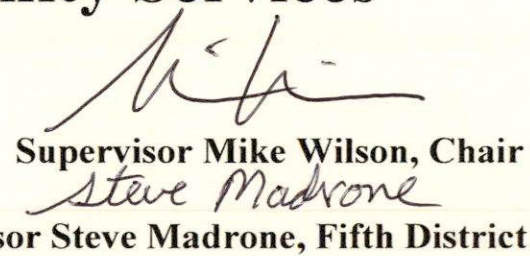 Supervisor Mike Wilson, Chair
Steve Madrone
sor Steve Madrone, Fifth District